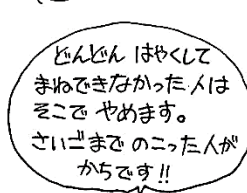 どんどん はやくして
まねできなかった人は
そこで やめます。
さいごまで のこった人が
かちです!!